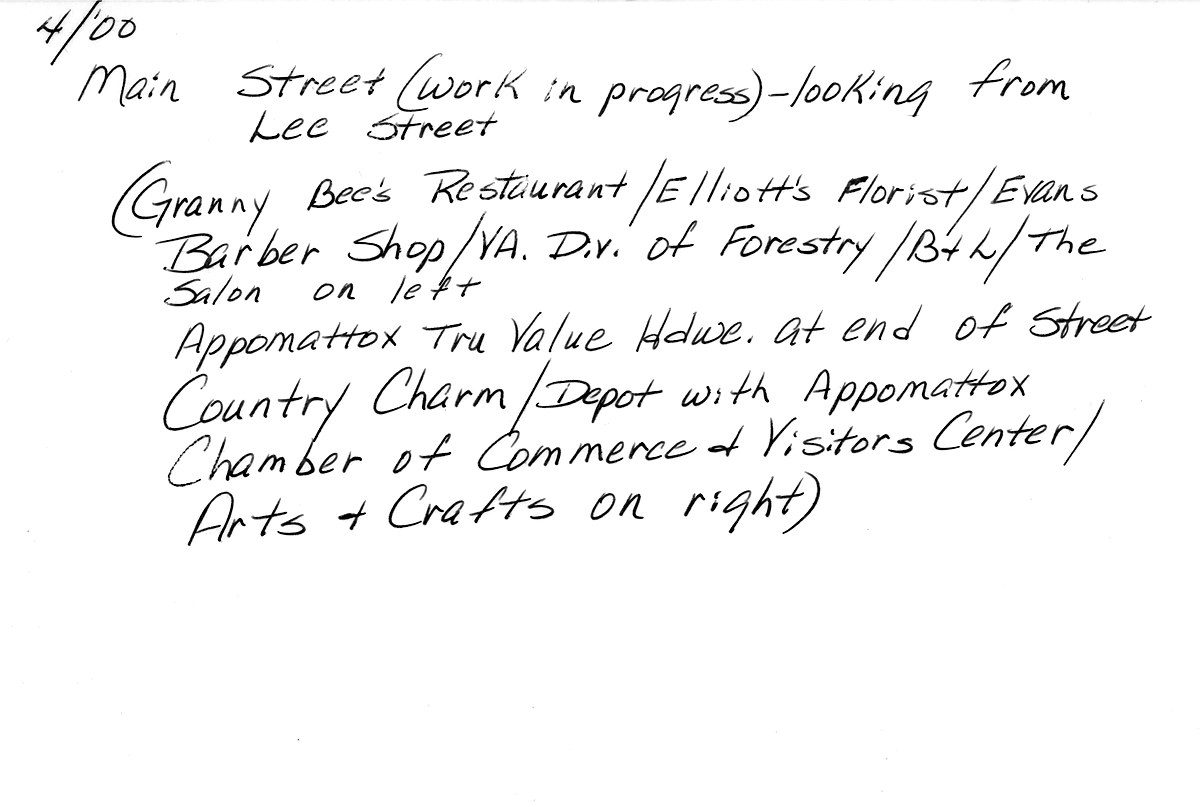 4/'00
Main Street (work in progress)-looking from
Lee Street
(Granny Bee's Restaurant/Elliott's Florist/Evans
Barber Shop/VA. Div. of Forestry/B+L/The
Salon on left
Appomattox Tru Value Hdwe. at end of Street
Country Charm/Depot with Appomattox
Chamber of Commerce + Visitors Center/
Arts + Crafts on right)